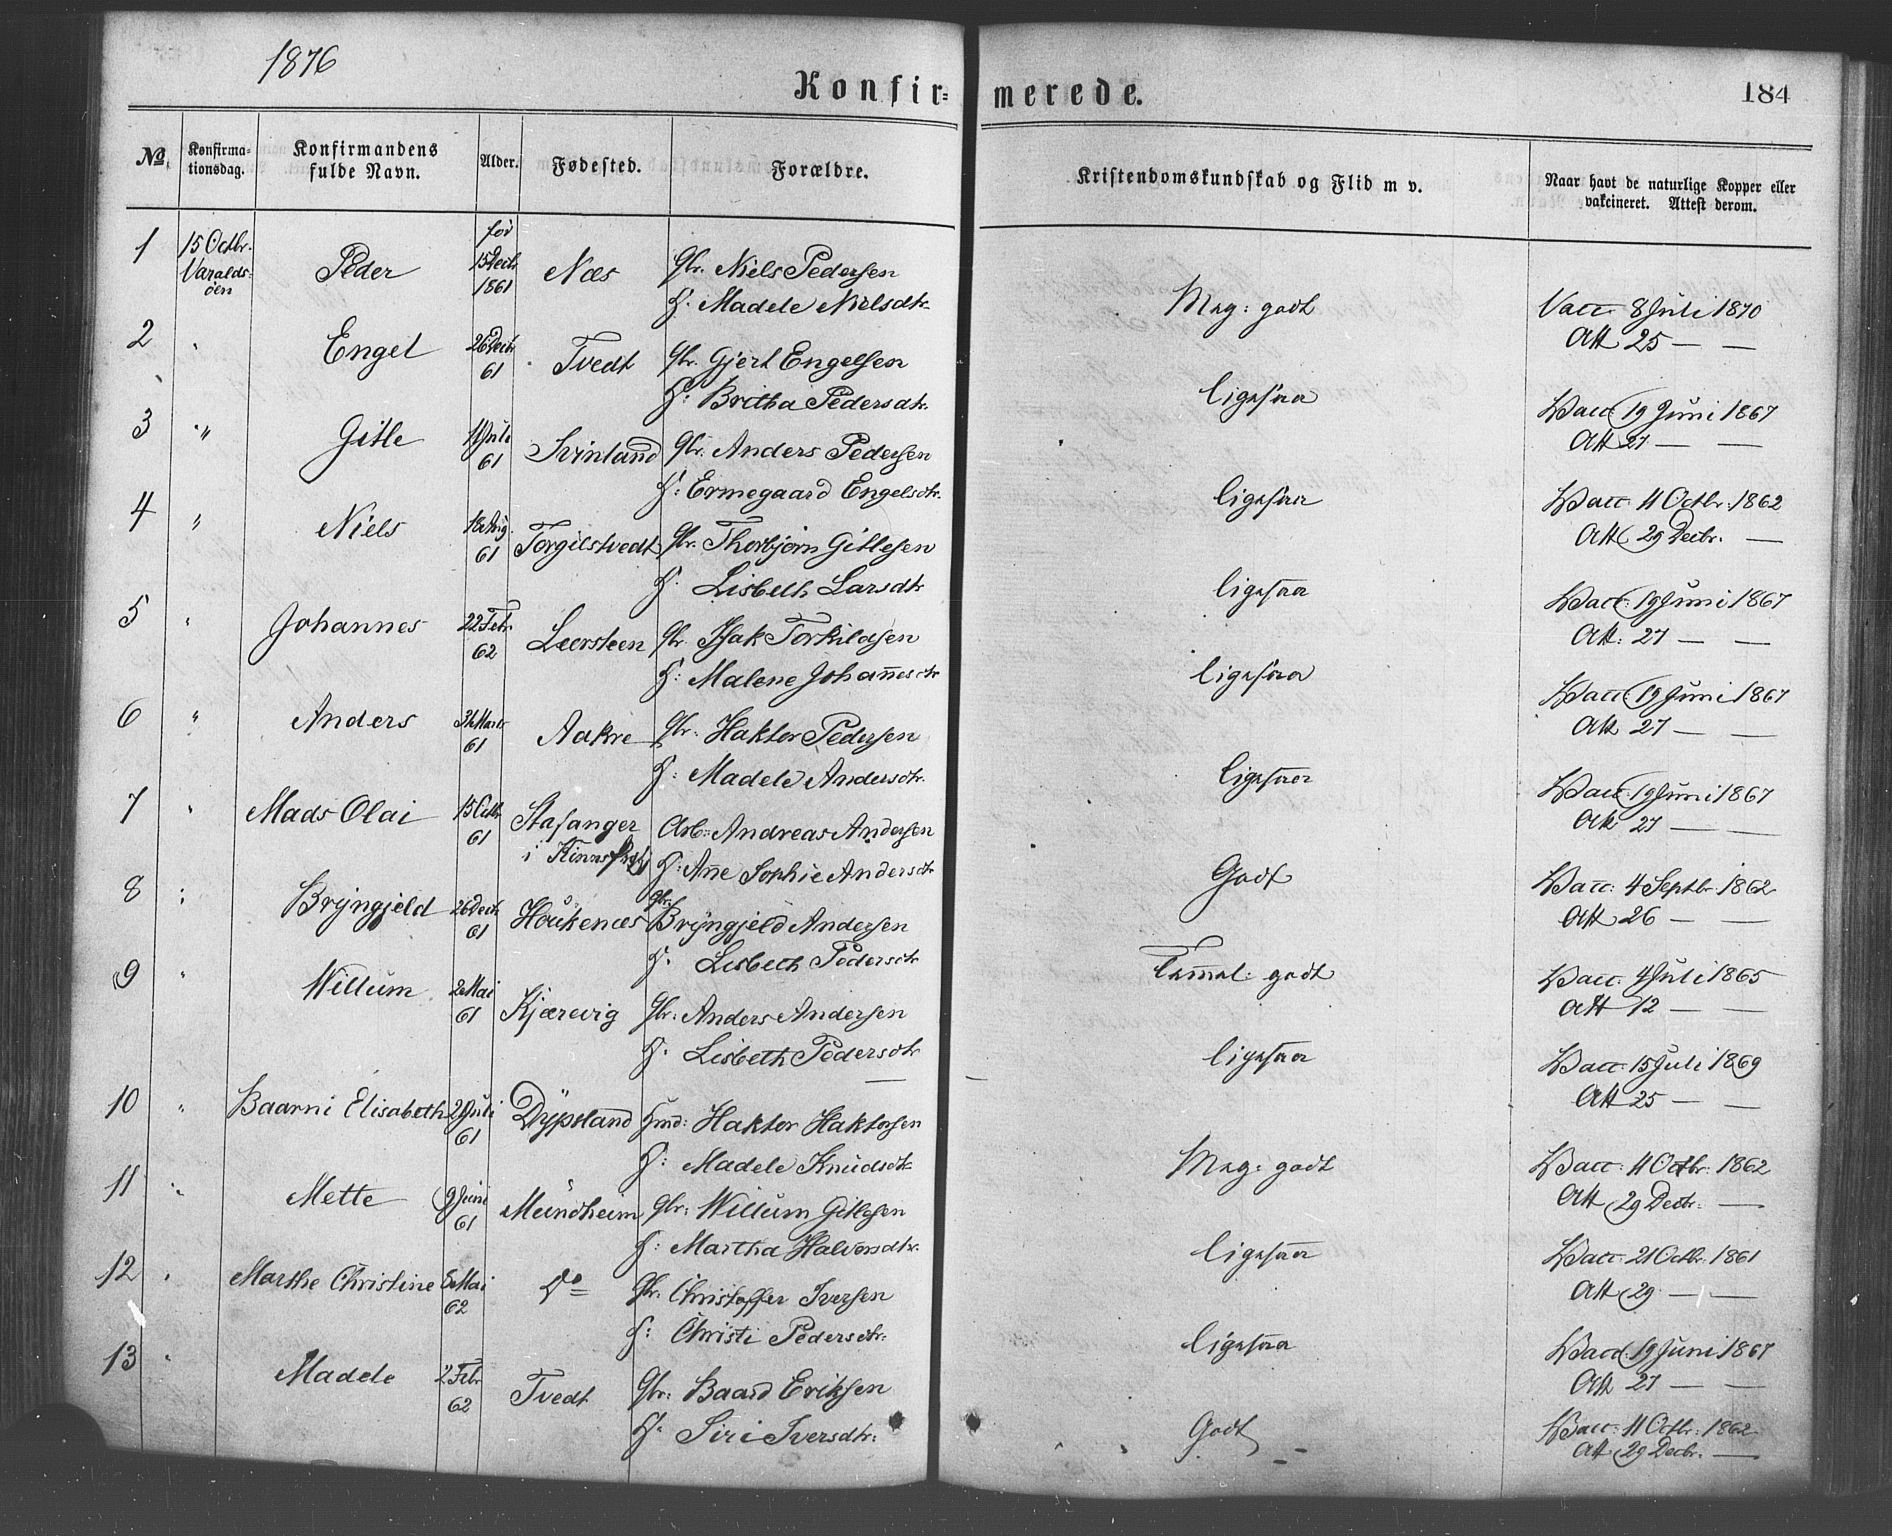 1876
Konfir= merede.
184
No. Konfirma-tionsdag. Konfirmandens fulde Navn. Alder. Fødested. Forældre. Kristendomskundskab og Flid m v. Naar havt de naturlige Kopper eller vakcineret. Attest derom.
1 15 Octbr. Varalds-öen Peder fød 15 Decbr 1861 Næs Gbr. Niels Pedersen
H. Madele Nielsdtr. Meg: godt Vacc 8 Juli 1870
Att 25 — —
2 " Engel 26 Decbr 61 Tvedt Gbr. Gjert Engelsen
H: Britha Pedersdtr. Ligesaa Vacc 19 Juni 1867
Att 27 — —
3 " Gitle Juli 61 Svinland Gbr. Anders Pedersen
H: Ermegaard Engelsdtr. Ligesaa Vacc 11 Octbr. 1862
Att 29 Decbr. —
4 " Niels 18 Aug. 61 Torgilstvedt Gbr. Thorbjørn Gitlesen
H. Lisbeth Larsdtr Ligesaa Vacc: 19 Juni 1867
Att: 27 — —
5 " Johannes 22 Febr. 62 Leersteen Gbr. Isak Torkildsen
H: Malene Johannesdtr Ligesaa Vacc 19 Juni 1867
Att 27 — —
6 " Anders Marts 61 Aakre Gbr: Haktor Pedersen
H: Madele Andersdtr. Ligesaa Vacc 19 Juni 1867
Att 27 — —
7 " Mads Olai 15 Octbr 61 Stafanger i Kinns Arb: Andreas Andersen
H: Anne Sophie Andersdtr Godt Vacc: 4 Septbr. 1862
Att 26 — —
8 " Bryngjeld 26 Decbr 61 Houkenæs Gbr. Bryngjeld Andersen
H. Lisbeth Pedersdtr Temmel: godt Vacc: 4 Juli 1865
Att 12 — —
9 " Willum 2 Mai 61 Kjærevig Gbr: Anders Andersen
H. Lisbeth Pedersdtr Ligesaa Vacc: 15 Juli 1869
Att 25 — —
10 " Baarni Elisabeth Juli 61 Dypsland Hmd: Haktor Haktorsen
H: Madele Knudsdtr Meg: godt Vacc: 11 Octbr. 1862
Att 29 Decbr. —
11 " Mette 9 Juni 61 Mundheim Gbr: Willum Gitlesen
H: Martha Halvorsdtr. Ligesaa Vacc: 21 Octbr. 1861
Att 29 — —
12 " Marthe Christine 5 Mai 62 Do Gbr. Christoffer Iversen
H: Christi Pedersdtr. Ligesaa Vacc: 19 Juni 1867
Att 27 — —
13 " Madele 2 Febr 62 Tvedt Gbr: Baard Eriksen
H. Siri Iversdtr. Godt Vacc: 11 Octbr: 1862
Att 29 Decbr. —